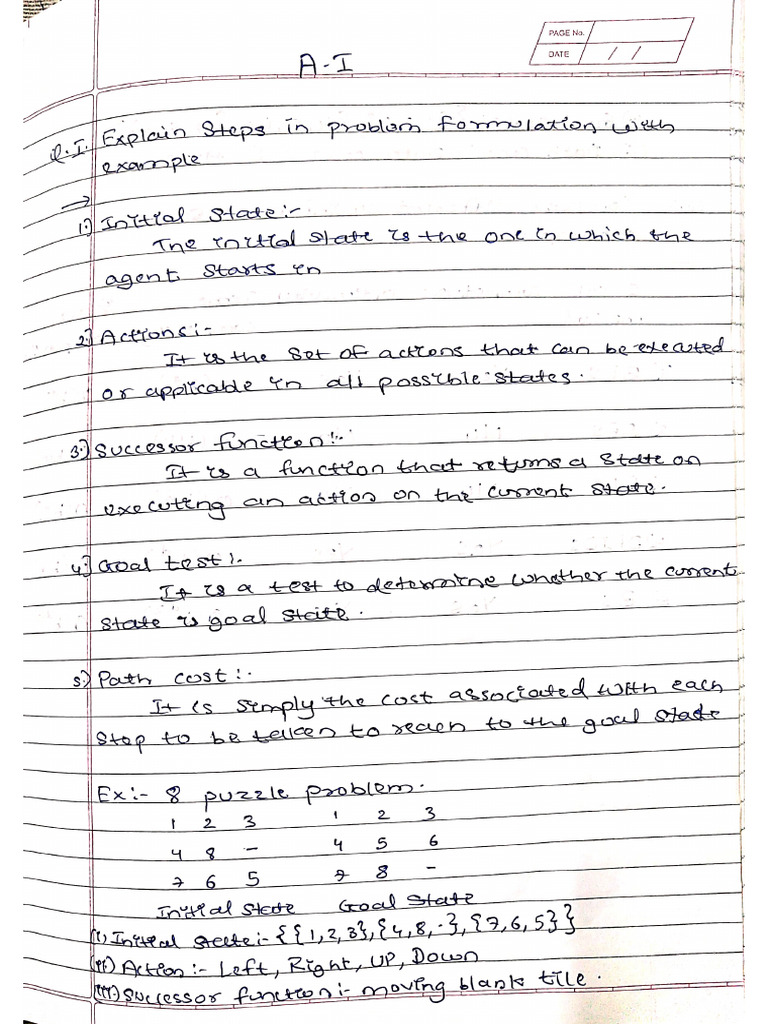 PAGE No.
DATE / /
A-I
Q.I. Explain Steps in problem formulation with
example
→
1.) Initial State:-
The initial state is the one in which the
agent starts in
2.) Actions:-
It is the set of actions that can be executed
or applicable in all possible states.
3.) Successor function:-
It is a function that returns a state on
executing an action on the current state.
4.) Goal test:-
It is a test to determine whether the current
state is goal state.
5.) Path cost:-
It is simply the cost associated with each
step to be taken to reach to the goal state
Ex:- 8 puzzle problem.
1 2 3 1 2 3
4 8 - 4 5 6
7 6 5 7 8 -
Initial State Goal State
(i) Initial state:- {{1,2,3},{4,8,-},{7,6,5}}
(ii) Action:- Left, Right, UP, Down
(iii) Successor function:- moving blank tile.